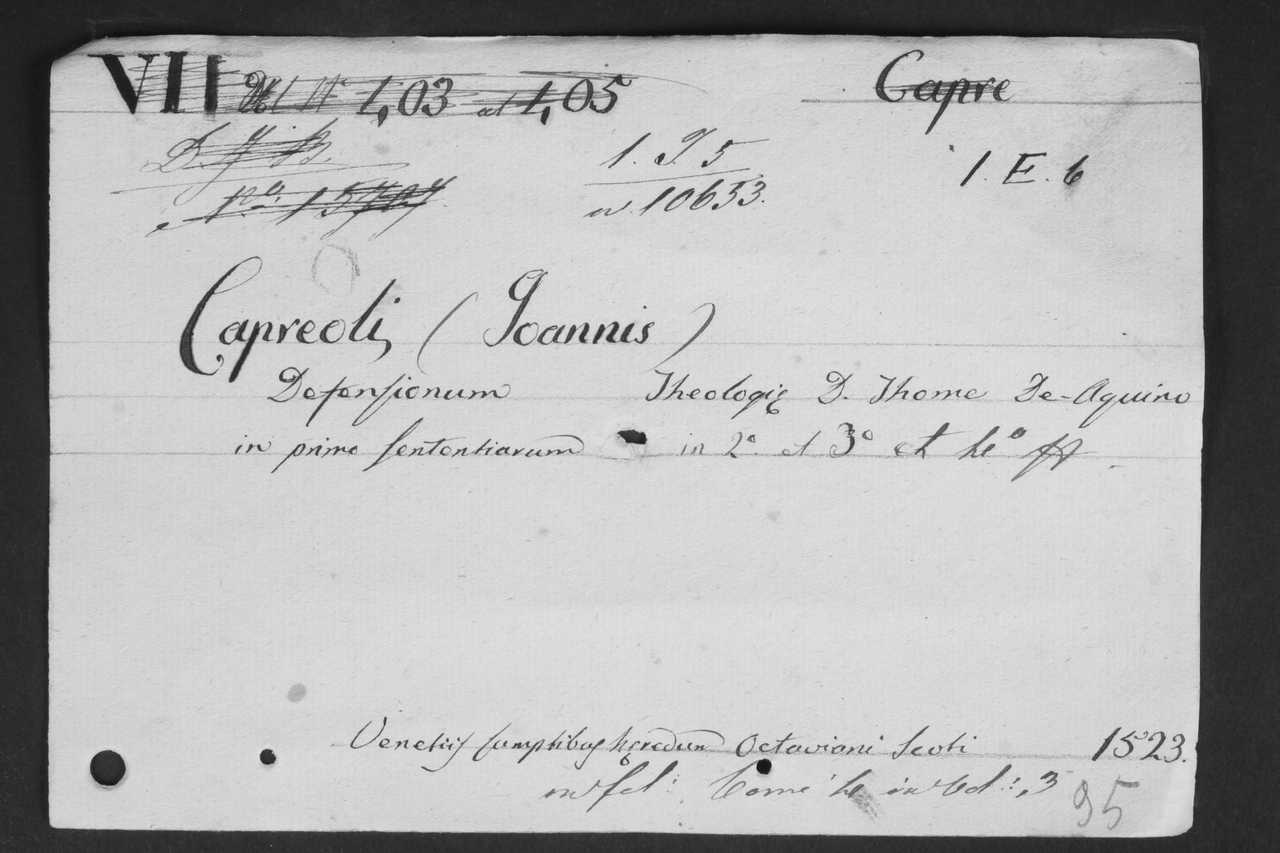 VII 4,03 et 4,05 Capre
D. J. B. 1. J 5 1. E. 6
n. 10633.
Capreoli, (Joannis)
Defensionum Theologię D. Thome De-Aquino
in primo sententiarum in 2º et 3º et 4º
Venetiis sumptibus hęredum Octaviani Scoti 1523.
in fol: Tomi 4 in Vol: 3
95